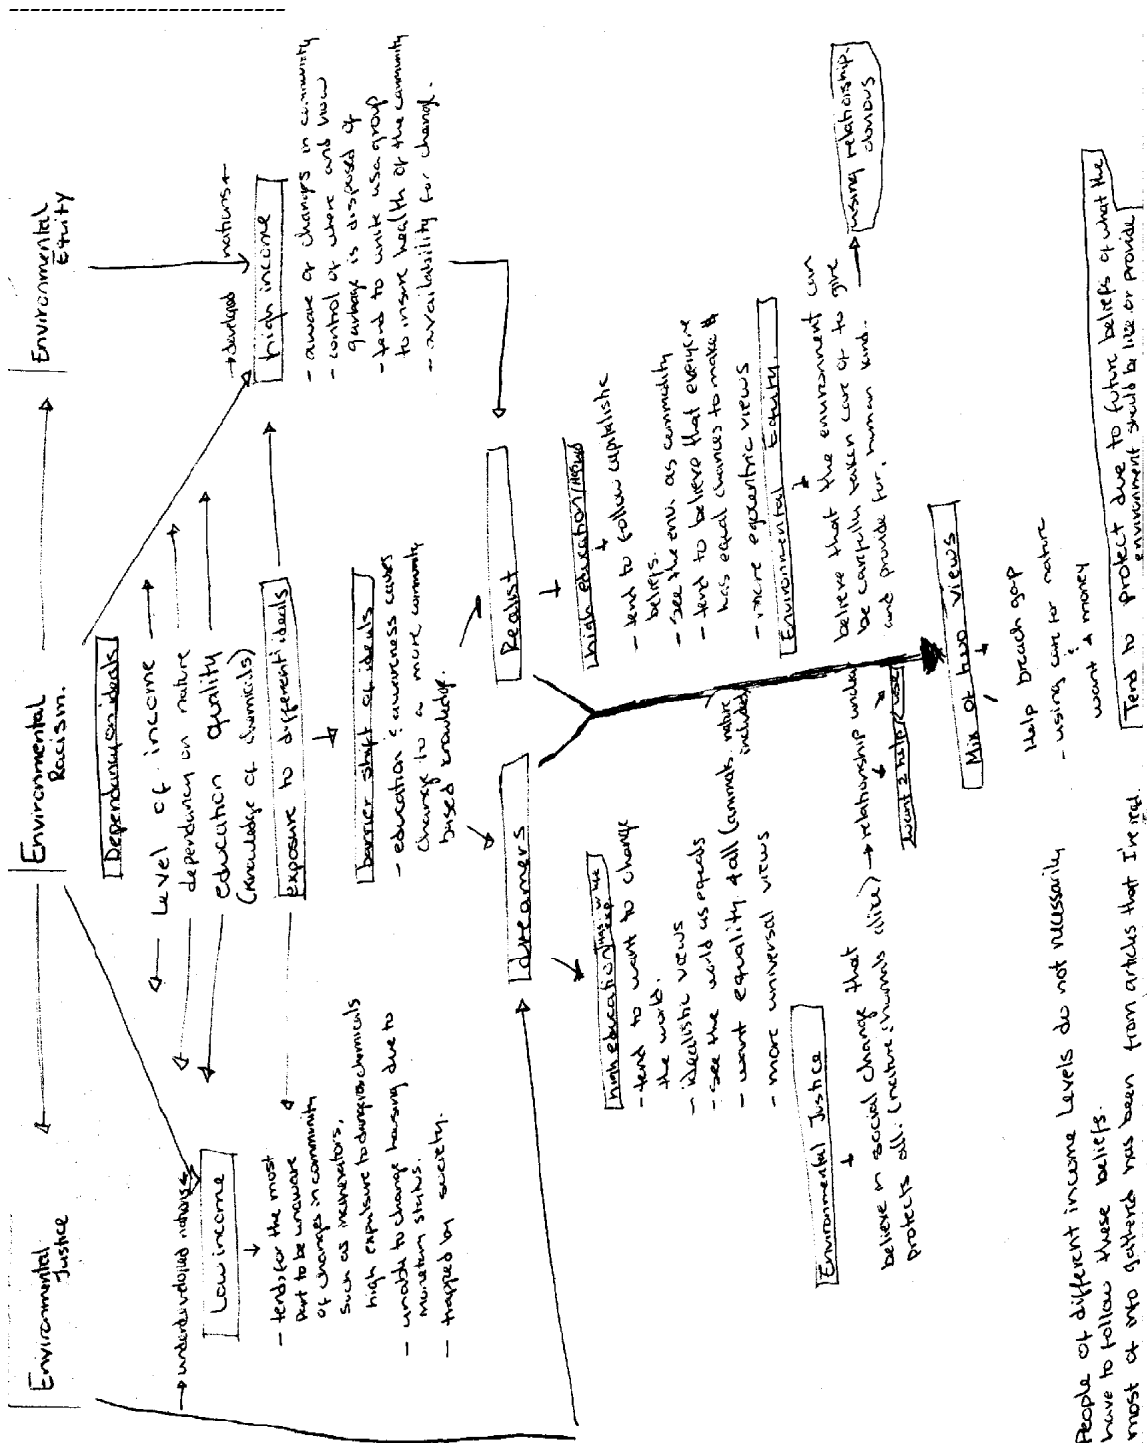 Environmental
Justice
Environmental
Racism.
Environmental
Equity
→ underdeveloped nations ←
Low income
- tends, for the most
part to be unaware
of changes in community
such as incinerators,
high expulsive to dangerous chemicals
- unable to change housing due to
monetary status.
- trapped by society.
Dependancy on ideals
Level of income
dependancy on nature
education quality
(knowledge of chemicals)
exposure to different ideals
barrier shift of ideals
- education & awareness causes
change to a more community
based knowledge.
→ developed nations ←
high income
- aware of changes in community
- control of where and how
garbage is disposed of
- tend to unite us a group
to insure health of the community
- availability for change.
dreamers
high education
- tend to want to change
the world.
- idealistic views
- see the world as equals
- want equality 4 all (animals, nature included)
- more universal views
Environmental Justice
believe in social change that
protects all. (nature & humals alike) → relationship under
want 2 help
Realist
high education
- tend to follow capitalistic
beliefs.
- see the envi. as commodity
- tend to believe that everyone
has equal chances to make $
- more egocentric views
Environmental Equity.
believe that the environment can
be carefully taken care of to give
and provide for, human kind.
using relationship.
obvious
Mix of two views
Help breach gap
- using care for nature
&
want 4 money
Tend to protect due to future beliefs of what the
environment should be like or provide
People of different income levels do not necessarily
have to follow these beliefs.
most of info gathered has been from articles that I've read.